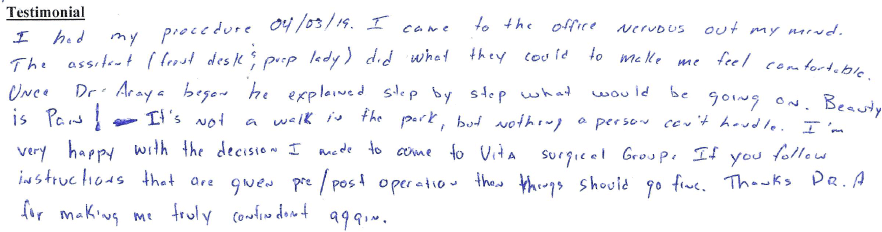 Testimonial
I had my procedure 04/03/19. I came to the office nervous out my mind.
The assitent (front desk & prep lady) did what they could to make me feel comfortable.
Once Dr. Araya began he explained step by step what would be going on. Beauty
is Pain! It's not a walk in the park, but nothing a person can't handle. I'm
very happy with the decision I made to come to Vita Surgical Group. If you follow
instructions that are given pre/post operation then things should go fine. Thanks DR. A
for making me truly confindent again.